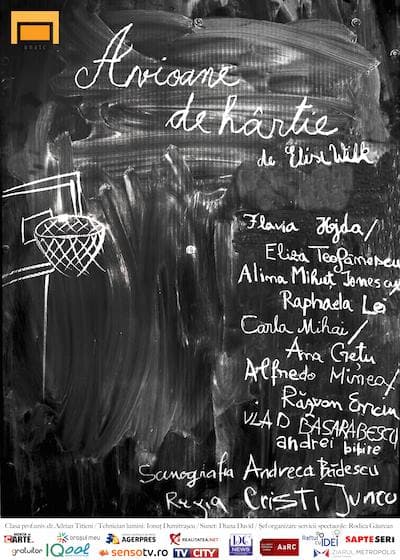 unatc
Avioane
de hârtie
de Elise Wilk
Flavia Hojda/
Eliza Teofănescu
Alina Mihuț Ionescu
Raphaela Lei
Carla Mihai/
Ana Crețu
Alfredo Minea/
Răzvan Enciu
VLAD BASARABESCU
andrei bibire
Scenografa Andreea Bădescu
Regia CRISTI JUNCU
Clasa prof.univ.dr. Adrian Titieni / Tehnician lumini: Ionuț Dumitrașcu / Sunet: Diana David / Șef organizare servicii spectacole: Rodica Găurean
ARTE orașul meu AGERPRES REALITATEA.NET DC NEWS AaRC Raftul cu IDEI SAPTE SERI
gratuitor IQool sensotv.ro TV CITY ZIARUL METROPOLIS